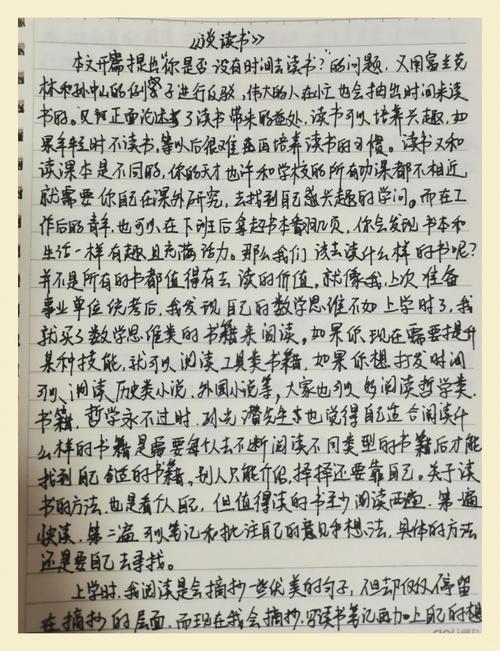 《谈读书》
本文开篇提出"你是否没有时间去读书?"的问题,又用富兰克
林和孙中山的例子进行反驳,伟大的人在小忙也会抽出时间来读
书的。又正面论述了读书带来的益处,读书可以培养兴趣,如
果年轻时不读书,等以后很难在再培养读书的习惯。读书又和
读课本是不同的,你的天才也许和学校的所有功课都不相近
就需要你自己在课外研究,去找到自己感兴趣的学问。而在工
作后的青年,也可以在下班后拿起书本翻几页,你会发现书本和
生活一样有趣且充满活力。那么我们该去读什么样的书呢?
并不是所有的书都值得有去读的价值。就像我,上次准备
事业单位统考后,我发现自己的数学思维不如上学时了,我
就买了数学思维类的书籍来阅读。如果你现在需要提升
某种技能,就可以阅读工具类书籍,如果你想打发时间
可以阅读历史类小说,外国小说等,大家也可以多阅读哲学类
书籍,哲学永不过时,朱光潜先生也觉得自己适合阅读什
么样的书籍是需要每个人去不断阅读不同类型的书籍后才能
找到自己合适的书籍,别人只能介绍,择择还要靠自己。关于读
书的方法,也是看个人自己,但值得读的书至少阅读两遍,第一遍
快读,第二遍可以笔记和批注自己的意见和想法,具体的方法
还是要自己去寻找。
上学时,我阅读是会摘抄一些优美的句子,但却仅仅停留
在摘抄的层面,而现在我会摘抄,写读书笔记再加上自己的想